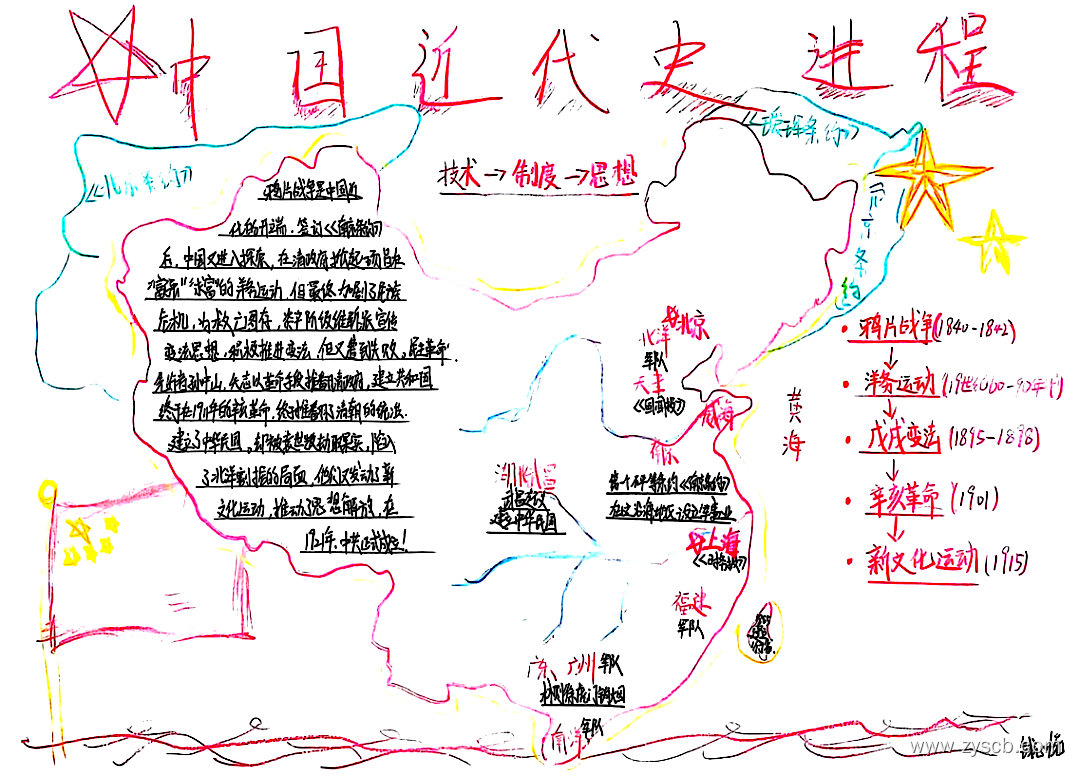 中国近代史进程
《北京条约》
《瑷珲条约》
北京条约
技术→制度→思想
鸦片战争是中国近
化的开端.签订《南京条约》
后，中国又进入探索，在清政府掀起一项名为
"自强""求富"的洋务运动，但最终加剧了民族
危机，为救亡图存，资产阶级维新派宣传
变法思想，积极推进变法，但又遭到失败。民主革命
先行者孙中山，矢志以革命手段推翻清政府，建立共和国
终于在1911年的辛亥革命，终于推翻了清朝的统治.
建立了中华民国，却被袁世凯窃取果实，陷入
了北洋割据的局面，他们又发动了新
文化运动，推动了思想解放，在
1921年，中共正式成立！
北京
北洋
军队
天津
威海
黄海
南京
第一个不平等条约《南京条约》
在这沿海地区设立军事业
湖北武昌
武昌起义
建立中华民国
上海
福建
军队
广东、广州军队
林则徐虎门销烟
南洋军队
• 鸦片战争(1840-1842)
↓
• 洋务运动(19世纪60-90年代)
↓
• 戊戌变法(1895-1898)
↓
• 辛亥革命(1901)
↓
• 新文化运动(1915)
www.zyscb.com